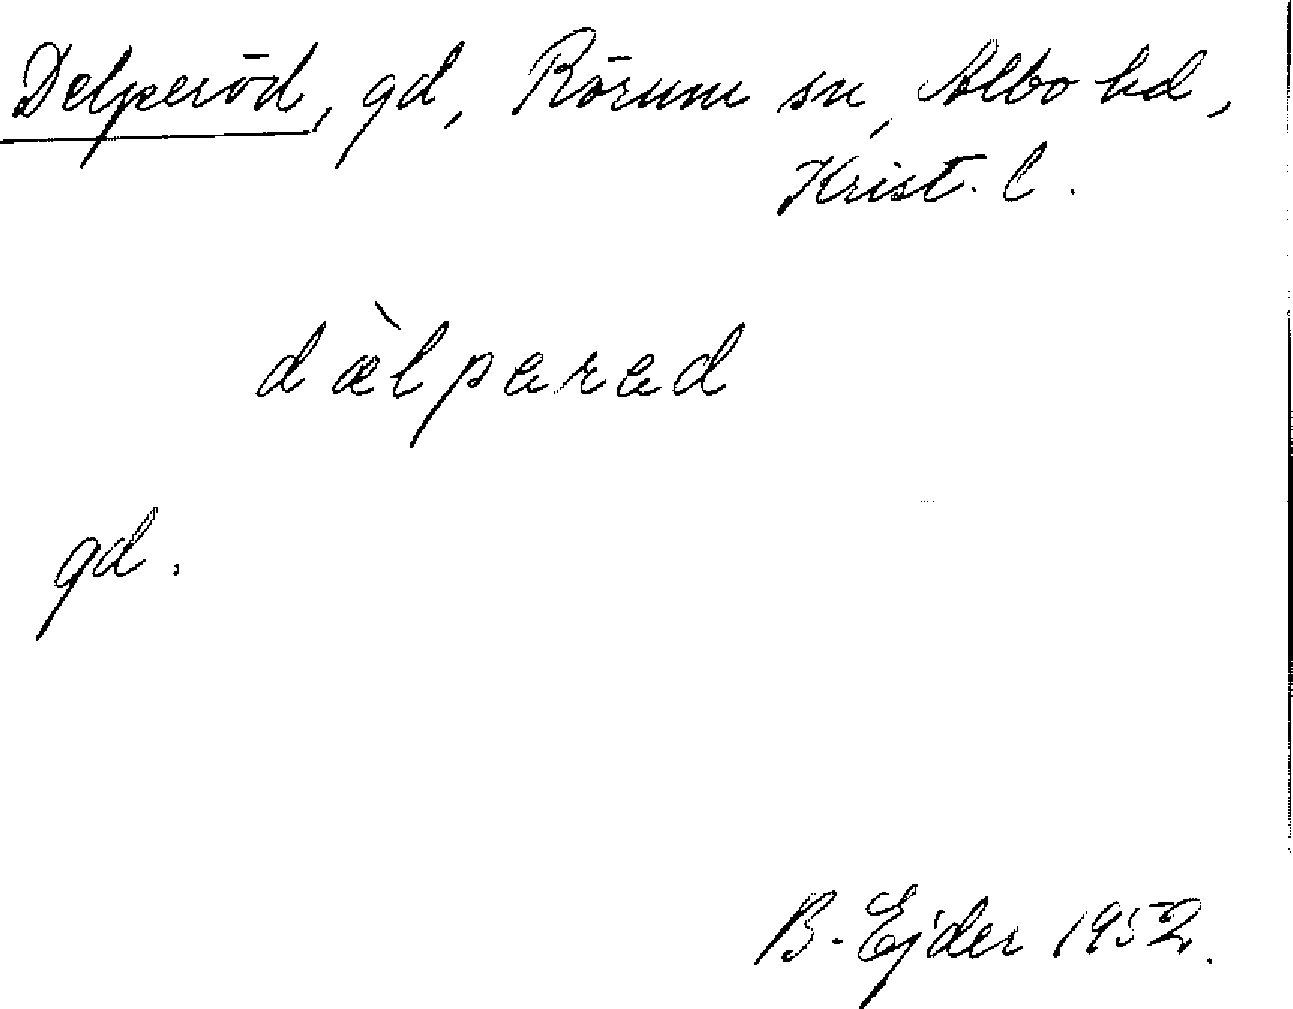 Delperöd, gd, Rörum sn, Albo hd,
Krist. l.
dæ̀lpərəd
gd.
B. Ejder 1952.